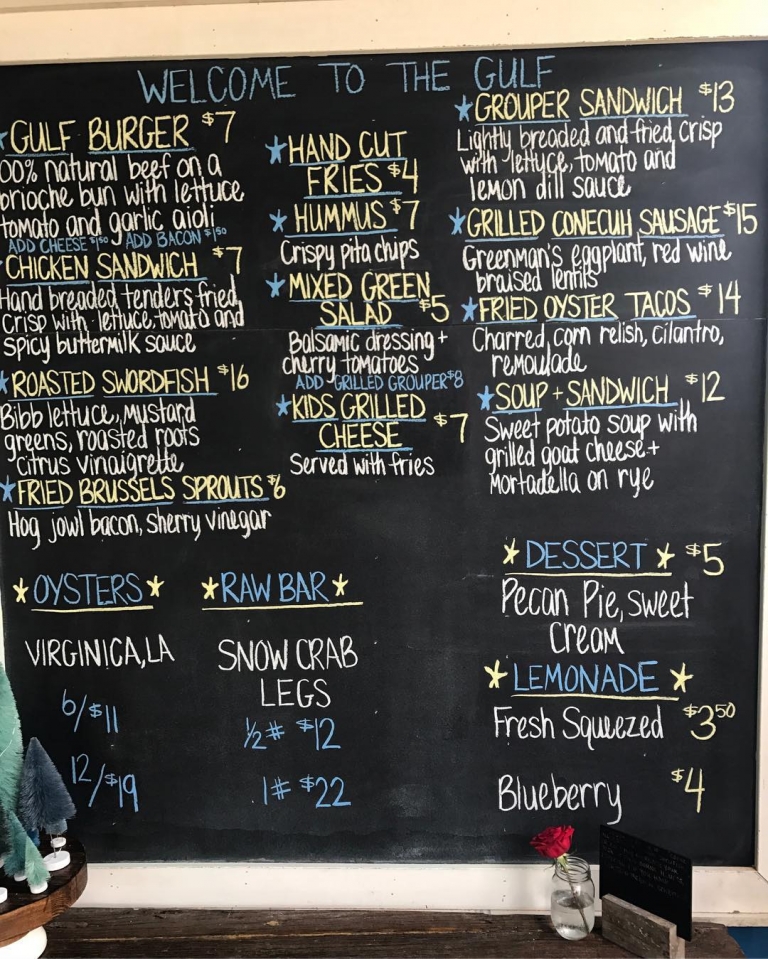 WELCOME TO THE GULF
GULF BURGER $7
00% natural beef on a
brioche bun with lettuce
tomato and garlic aioli
ADD CHEESE $1.50 ADD BACON $1.50
CHICKEN SANDWICH $7
Hand breaded tenders fried
crisp with lettuce, tomato and
spicy buttermilk sauce
ROASTED SWORDFISH $16
Bibb lettuce, Mustard
greens, roasted roots
Citrus vinaigrette
FRIED BRUSSELS SPROUTS $6
Hog jowl bacon, sherry vinegar
HAND CUT
FRIES $4
HUMMUS $7
Crispy pita chips
MIXED GREEN
SALAD $5
Balsamic dressing +
cherry tomatoes
ADD GRILLED GROUPER $8
KIDS GRILLED
CHEESE $7
Served with fries
GROUPER SANDWICH $13
Lightly breaded and fried crisp
with lettuce, tomato and
lemon dill sauce
GRILLED CONECUH SAUSAGE $15
Greenman's eggplant, red wine
braised lentils
FRIED OYSTER TACOS $14
Charred corn relish, cilantro,
remoulade
SOUP + SANDWICH $12
Sweet potato soup with
grilled goat cheese +
Mortadella on rye
OYSTERS
VIRGINICA, LA
6/$11
12/$19
RAW BAR
SNOW CRAB
LEGS
1/2# $12
1# $22
DESSERT $5
Pecan Pie, sweet
Cream
LEMONADE
Fresh Squeezed $3.50
Blueberry $4